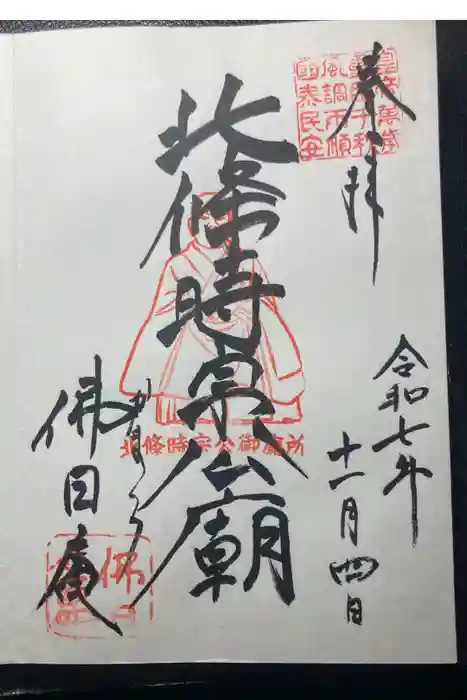 奉拝
皇帝萬歳
重臣千秋
風調雨順
国泰民安
令和七年
十一月四日
北條時宗公廟
北條時宗公御廟所
かまくら
佛日庵